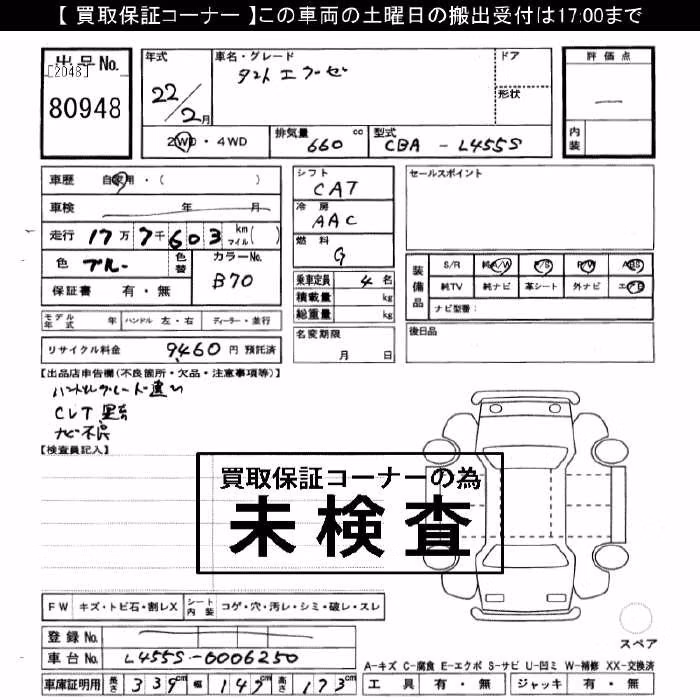 【 買取保証コーナー 】この車両の土曜日の搬出受付は17:00まで
出品No.
[2048]
80948
年式
22/2月
車名・グレード
タント エグゼ
ドア
形状
評価点
内装
2WD・4WD
排気量 660 cc
型式 CBA - L455S
車歴 自家用・( )
車検 年 月
走行 17万7千603 km マイル( )
色 ブルー 色替
カラーNo. B70
保証書 有・無
モデル年式 年 ハンドル 左・右 ディーラー・並行
リサイクル料金 9460 円 預託済
シフト CAT
冷房 AAC
燃料 G
乗車定員 4名
積載量 kg
総重量 kg
名変期限 月 日
セールスポイント
装備品
S/R 純A/W P/S P/W ABS
純TV 純ナビ 革シート 外ナビ エアB
ナビ型番:
後日品
【出品店申告欄(不良箇所・欠品・注意事項等)】
CVT 異音
ナビ不良
【検査員記入】
買取保証コーナーの為
未検査
FW キズ・トビ石・割レX シート内装 コゲ・穴・汚レ・シミ・破レ・スレ
登録No.
車台No. L455S-0006250
車庫証明用 長さ 339cm 幅 147cm 高さ 173cm
スペア
A-キズ C-腐食 E-エクボ S-サビ U-凹ミ W-補修 XX-交換済
工具 有・無 ジャッキ 有・無